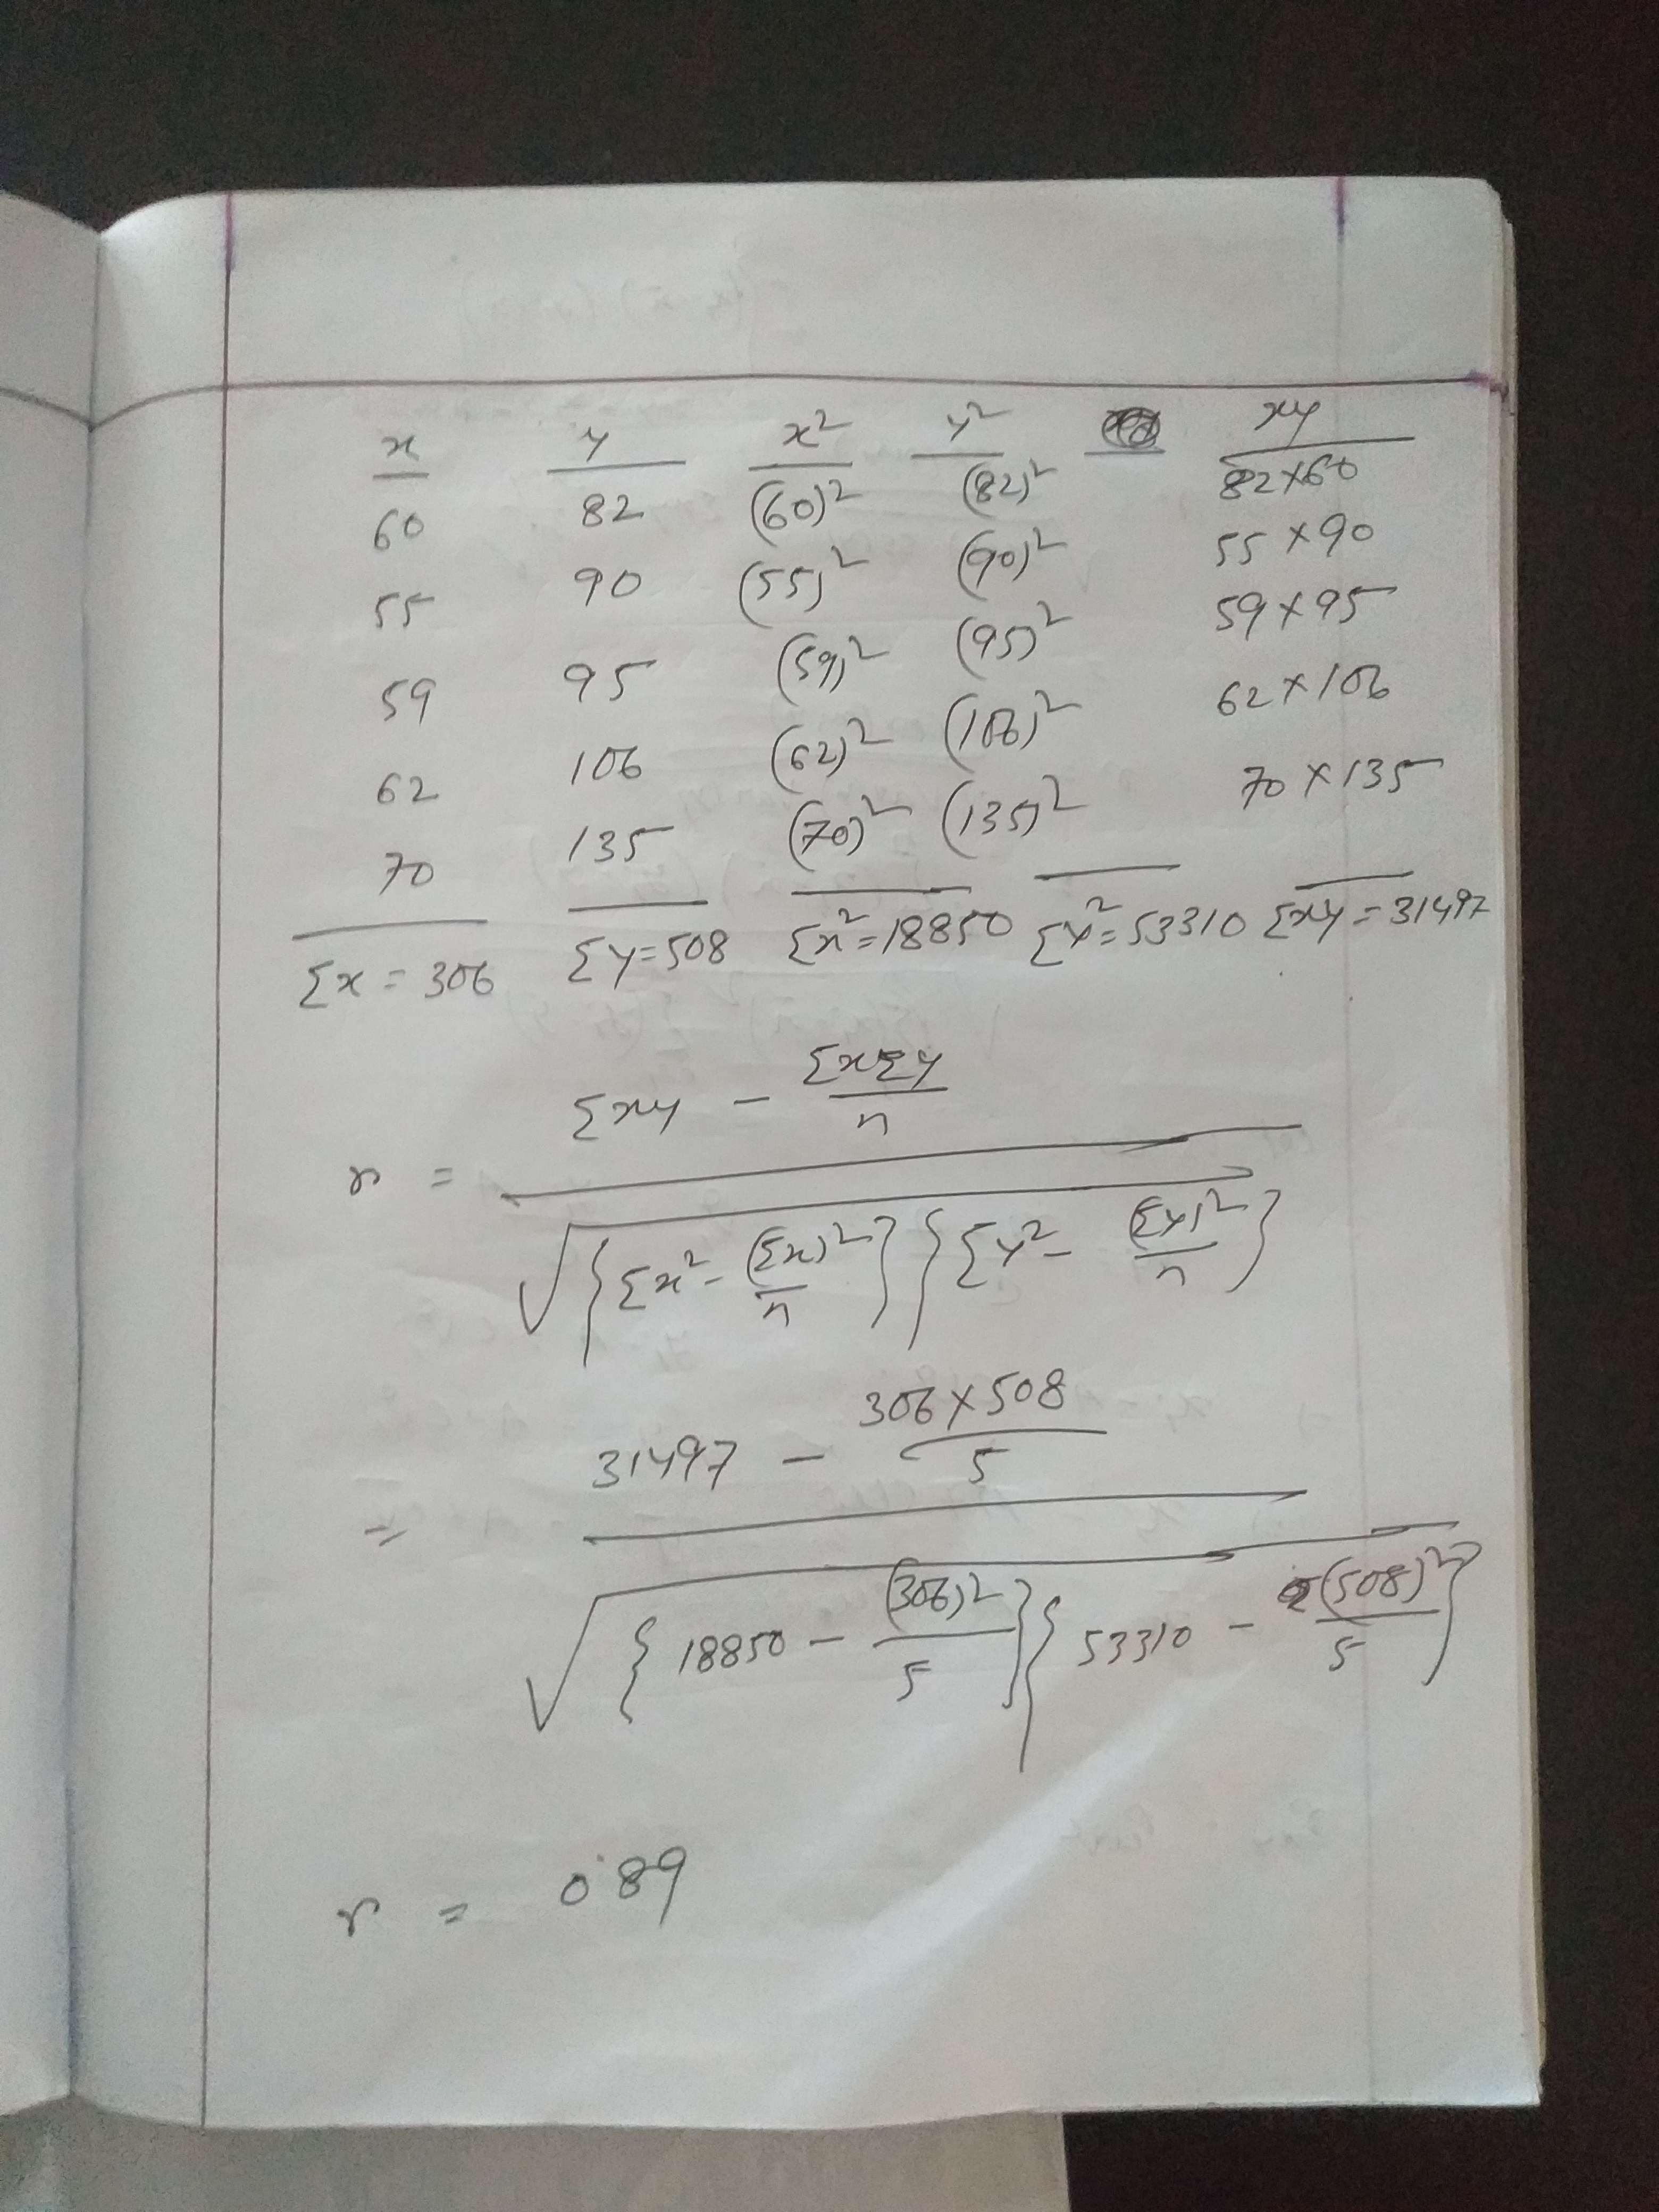 x y x² y² xy
60 82 (60)² (82)² 82×60
55 90 (55)² (90)² 55×90
59 95 (59)² (95)² 59×95
62 106 (62)² (106)² 62×106
70 135 (70)² (135)² 70×135
Σx = 306 Σy=508 Σx²=18850 Σy²=53310 Σxy=31497
r = Σxy - ΣxΣy/n
√{Σx² - (Σx)²/n}{Σy² - (Σy)²/n}
= 31497 - 306×508/5
√{18850 - (306)²/5}{53310 - (508)²/5}
r = 0.89